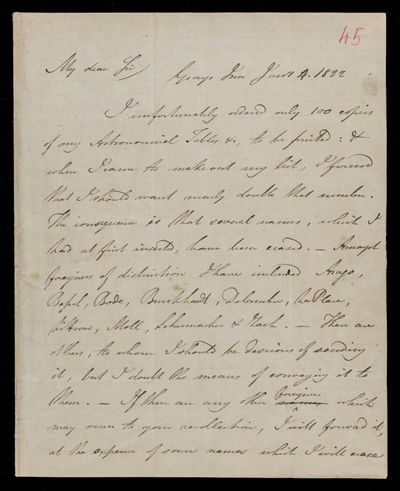 45
My dear Sir Grays Inn Jany 4. 1822
I unfortunately ordered only 100 copies
of my Astronomical Tables &c, to be printed : &
when I came to make out my list, I found
that I should want nearly double that number.
The consequence is that several names, which I
had at first inserted, have been erased. — Amongst
foreigners of distinction I have included Arago,
Bessel, Bode, Burckhardt, Delambre, La Place,
Littrow, Moll, Schumacher & Zach. — There are
others, to whom I should be desirous of sending
it, but I doubt the means of conveying it to
them. — If there are any other foreigners which
may occur to your recollection, I will forward it,
at the expense of some names which I will erase